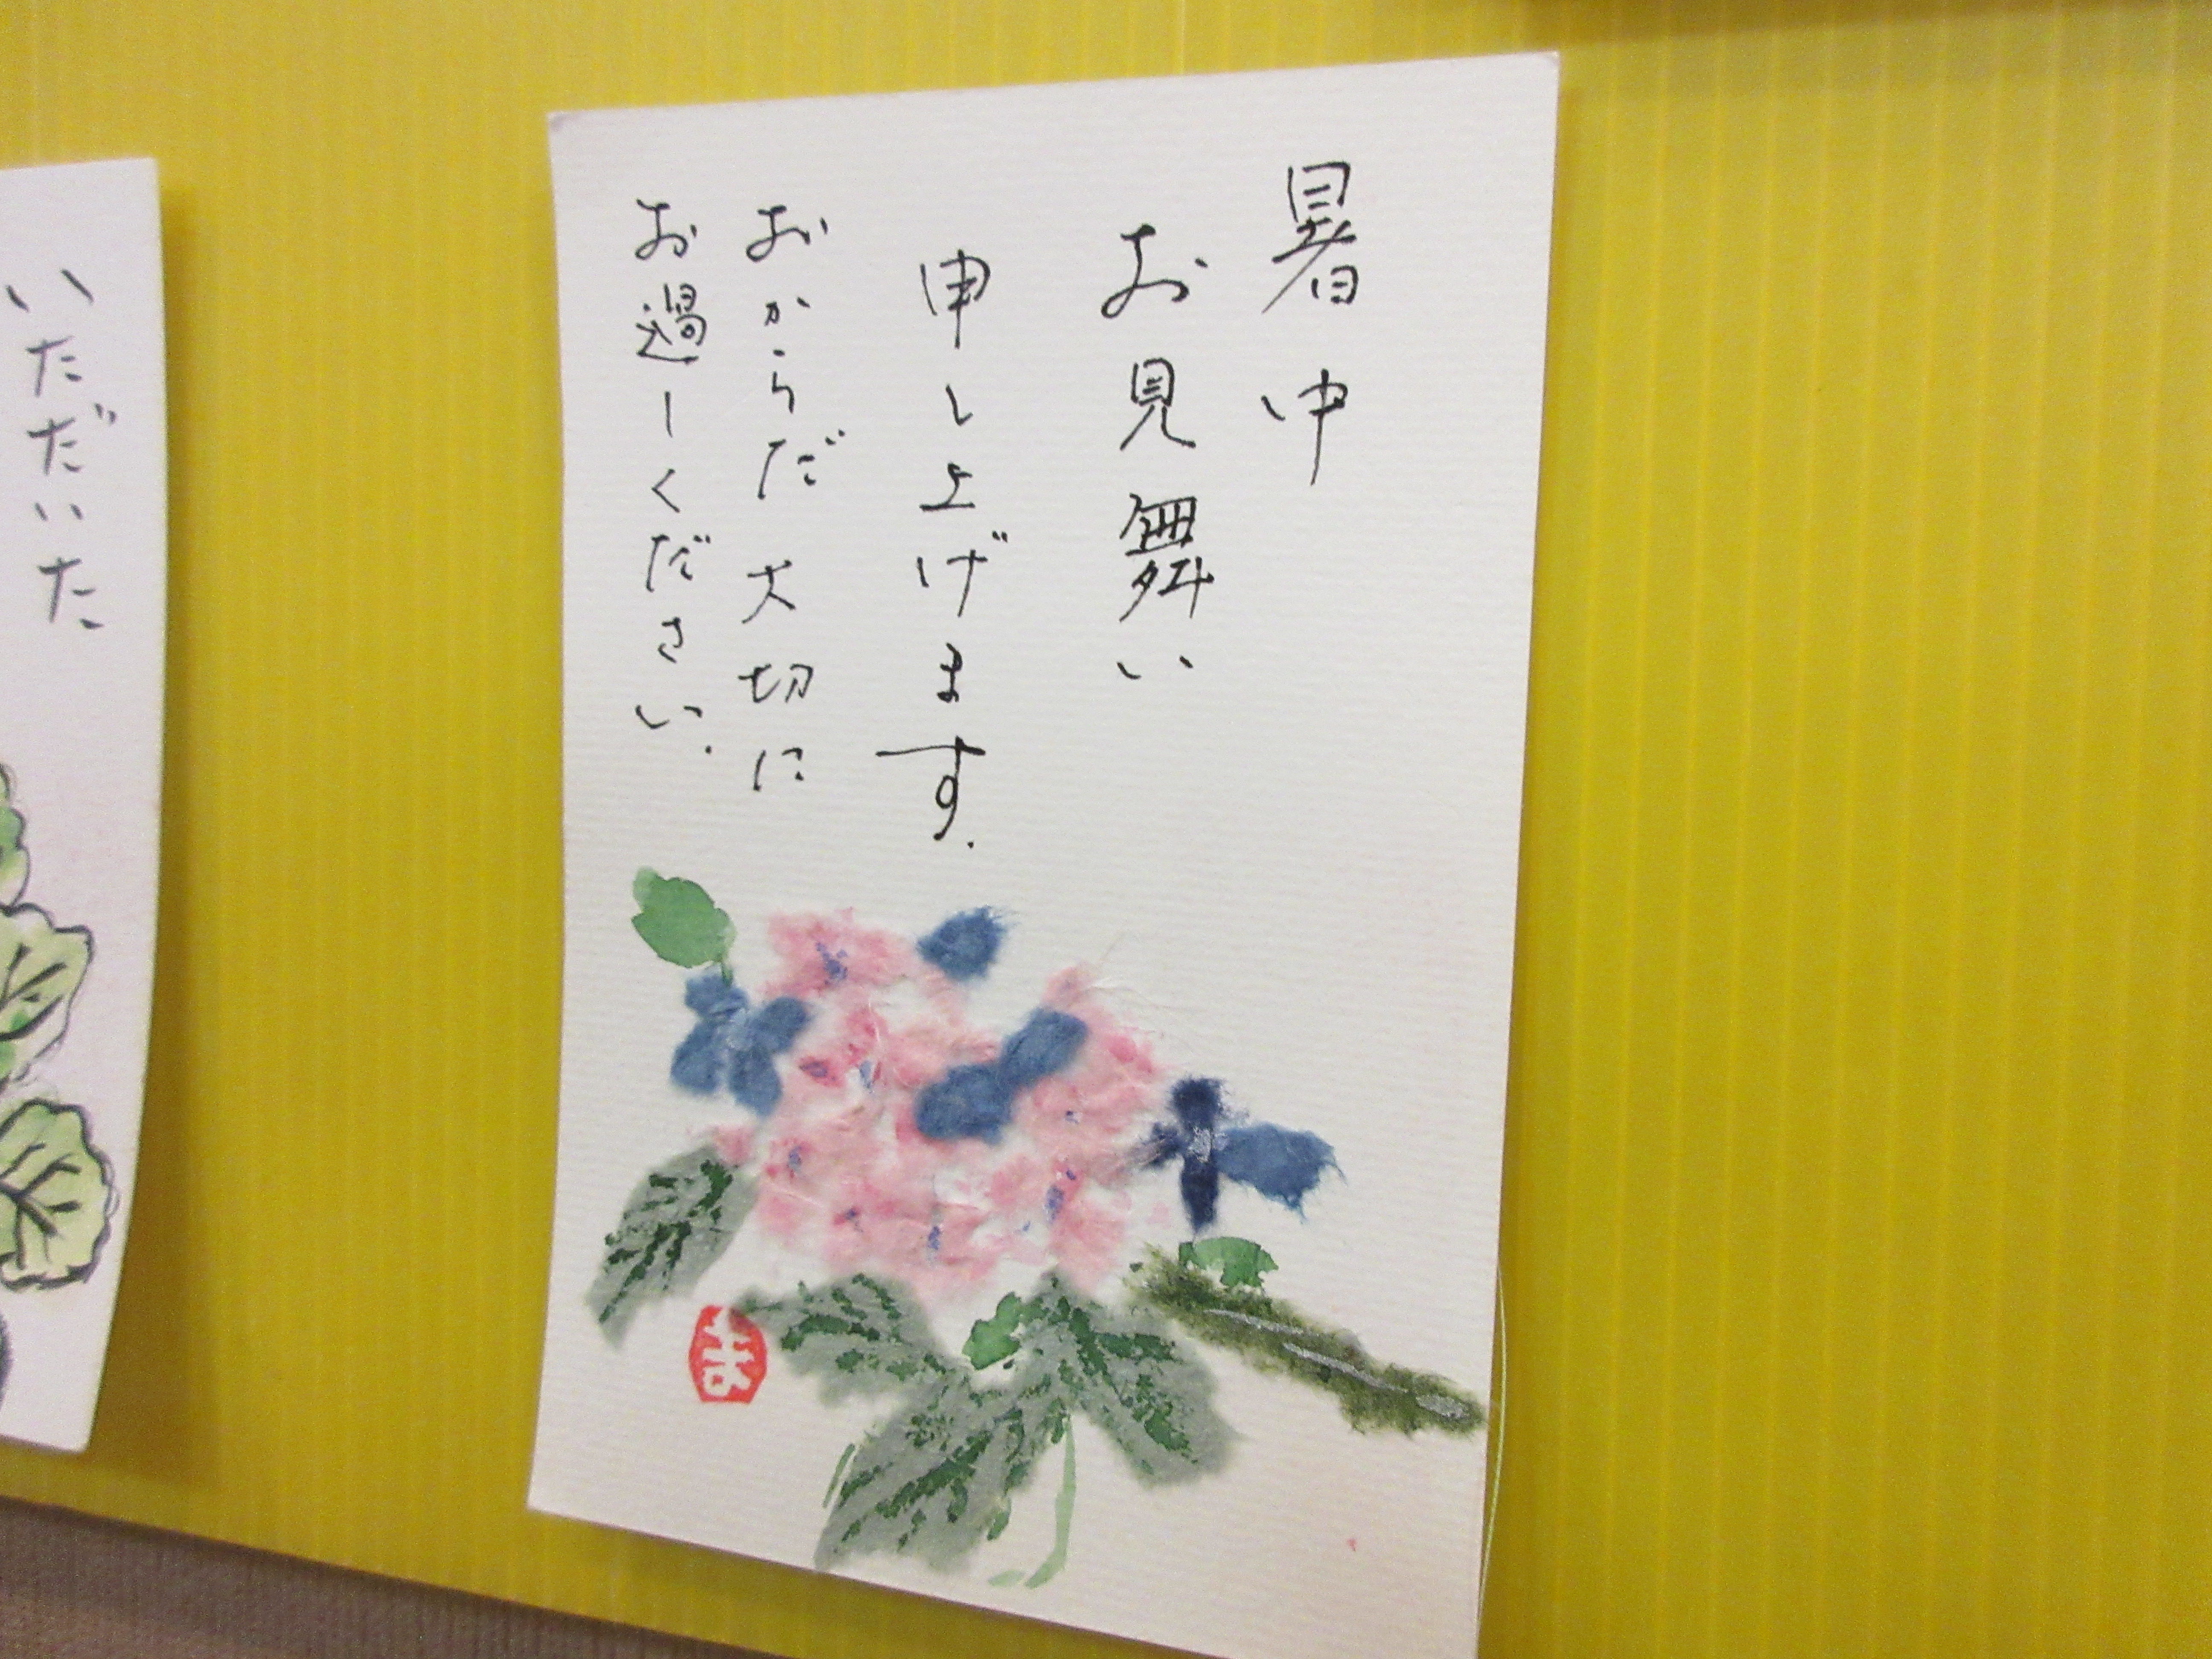 暑中
お見舞い
申し上げます.
おからだ大切に
お過しください.
ま
いただいた